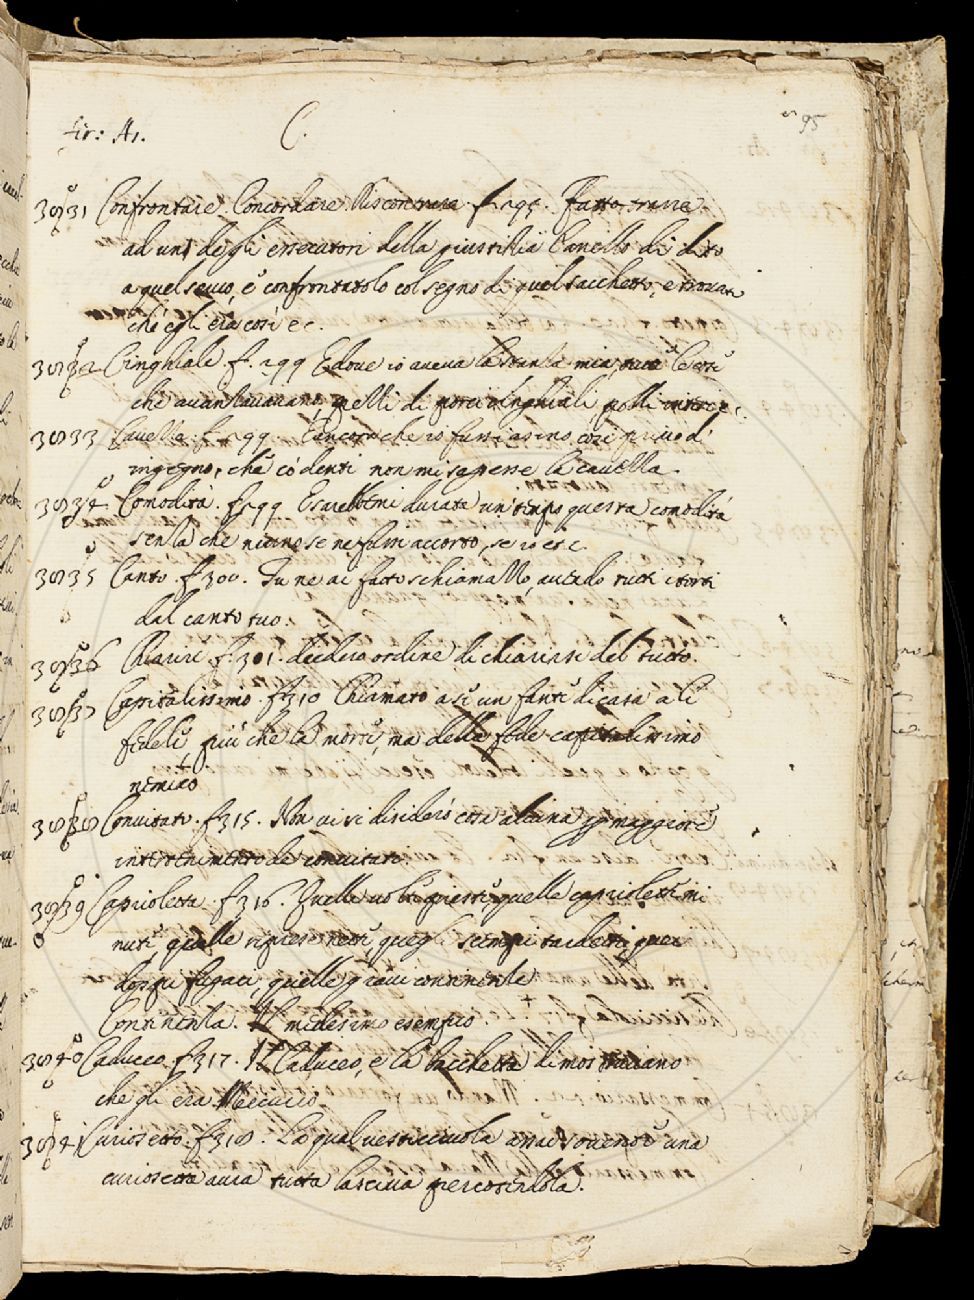 fir: A1. C. 95
3831 Confrontare Concordare Riscontrare f. 295. Fatto trarre
ad uno degli essecutori della giustitia l'anello di dito
a quel servo, e confrontatolo col segno di quel sacchetto, e trovato
che egli era così ec.
3832 Cinghiale f. 299 E dove io aveva la stanza mia, tutte le
che avanzavano, quelli di porci cinghiali
3833 Cavelle. f. 299 Ancora che io fussi asino, così privo d'
ingegno, che co' denti non mi sapesse la cavella.
3834 Comodità. f. 299 E sarebbemi durata un tempo questa comodità
senza che niuno se ne fussi accorto, se io etc.
3835 Canto. f. 300. Tu ne ai fatto schiamazzo, avendo tutti i torti
dal canto tuo.
3836 Chiarire f. 301. diedero ordine di chiarirsi del tutto.
3837 Capitalissimo. f. 310 Chiamato a se un fante di casa a lei
fedele, più che la morte, ma della fede capitalissimo
nemico
3838 Convitato. f. 315. Non vi si disiderò cosa alcuna p maggiore
intertenimento de convitati.
3839 Caprioletta. f. 316. Quelle volte preste, quelle capriolette mi
nute quelle riprese nette, quegli scempi tardetti, quei
doppi fugaci, quelle gravi continenze
Continenza. Il medesimo esempio.
3840 Caduceo. f. 317. Il Caduceo, e la bacchetta dimostravano
che gli era Mercurio
3841 Curiosetto. f. 318. La qual vesticciuola assai sovente una
curiosetta aura tutta lasciva percotendola.